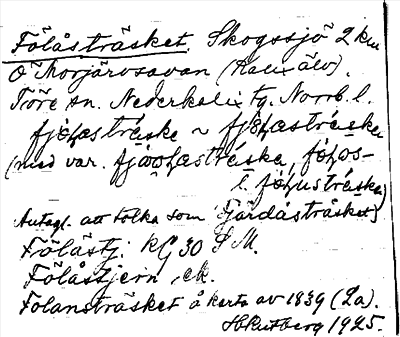 Fölåsträsket. Skogssjö 2 km
Ö Morjärvsavan (Kalix älv).
Töre sn. Nederkalix tg. Norrb. l.
fjöḷasträske ~ fjöḷasträske
(med var. fjäoḷasträska, föḷos-
l. föḷusträske)
Antagl. att tolka som Fjärdåsträsket)
Fölåstj. KG 30 SM.
Fölåstjern, ek.
Folansträsket å karta av 1839 (La).
H Rutberg 1925.